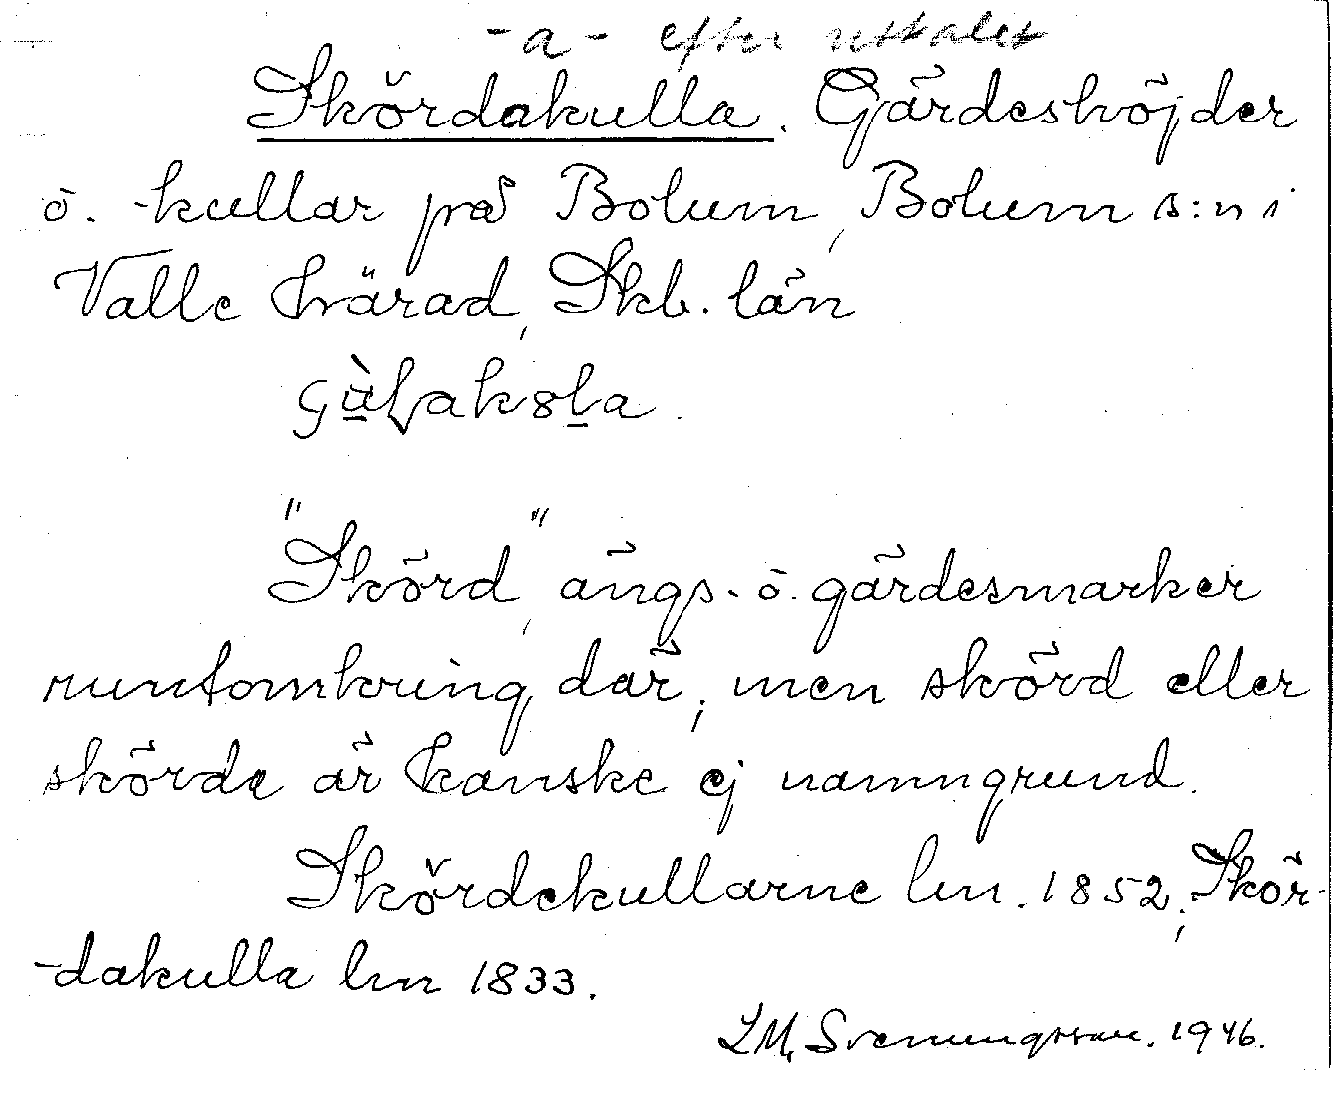 -a- efter uttalet
Skördakulla. Gärdeshöjder
o. -kullar på Bolum, Bolum s:n i
Valle härad, Skb. län

"Skörd", ängs- o. gärdesmarker
runtomkring där; men skörd eller
skörde är kanske ej namngrund.
Skördekullarne lm. 1852; Skör-
-dakulla lm 1833.
LM. Svenungsson. 1946.